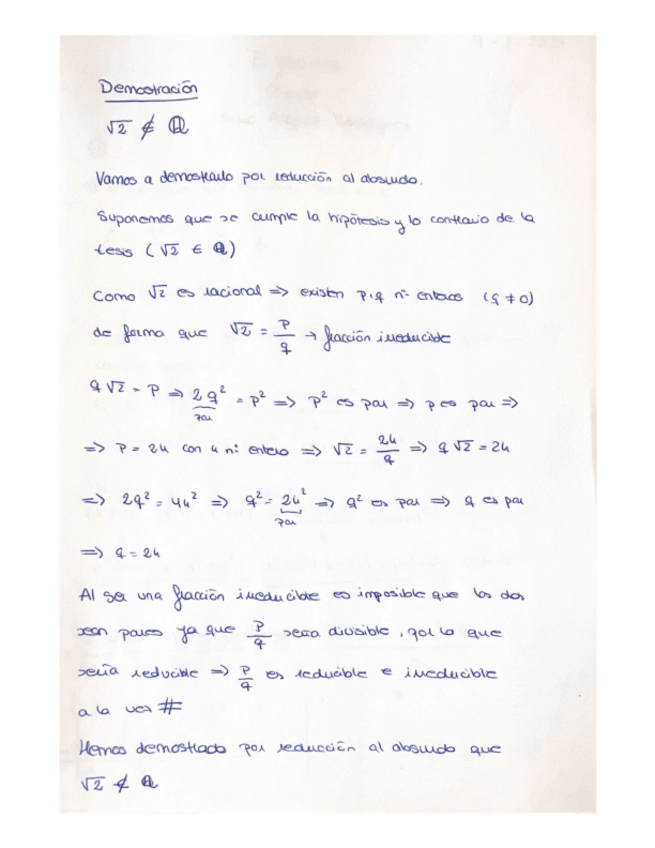 Demostración
√2 ∉ ℚ
Vamos a demostrarlo por reducción al absurdo.
Suponemos que se cumple la hipótesis y lo contrario de la
tesis (√2 ∈ ℚ)
Como √2 es racional => existen p,q nº enteros (q ≠ 0)
de forma que √2 = p/q → fracción irreducible
q√2 = p => 2q² = p² => p² es par => p es par =>
par
=> p = 2k con k nº entero => √2 = 2k/q => q√2 = 2k
=> 2q² = 4k² => q² = 2k² => q² es par => q es par
par
=> q = 2k
Al ser una fracción irreducible es imposible que los dos
sean pares ya que p/q sería divisible, por lo que
sería reducible => p/q es reducible e irreducible
a la vez #
Hemos demostrado por reducción al absurdo que
√2 ∉ ℚ